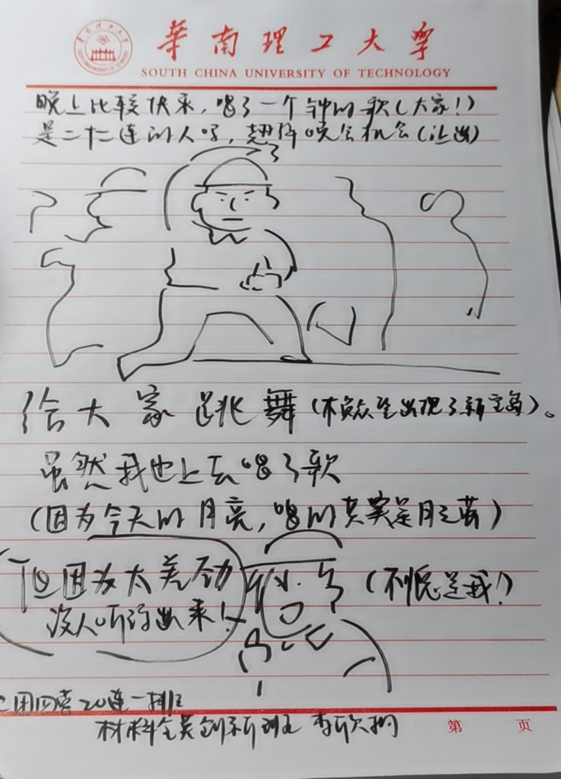 華南理工大學
SOUTH CHINA UNIVERSITY OF TECHNOLOGY
晚上比较快乐，唱了一个钟的歌（大家！）
是二十二连的人才，晚会机会（让出）
给大家跳舞（本众生出现了新宝岛）。
虽然我也上去唱了歌
（因为今天的月亮，唱的其实是月之莴）
但因为太羞勿
没人听得出来！
（不愧是我！）
二团四营20连一排1班
材料全英创新班 李欣
第 页